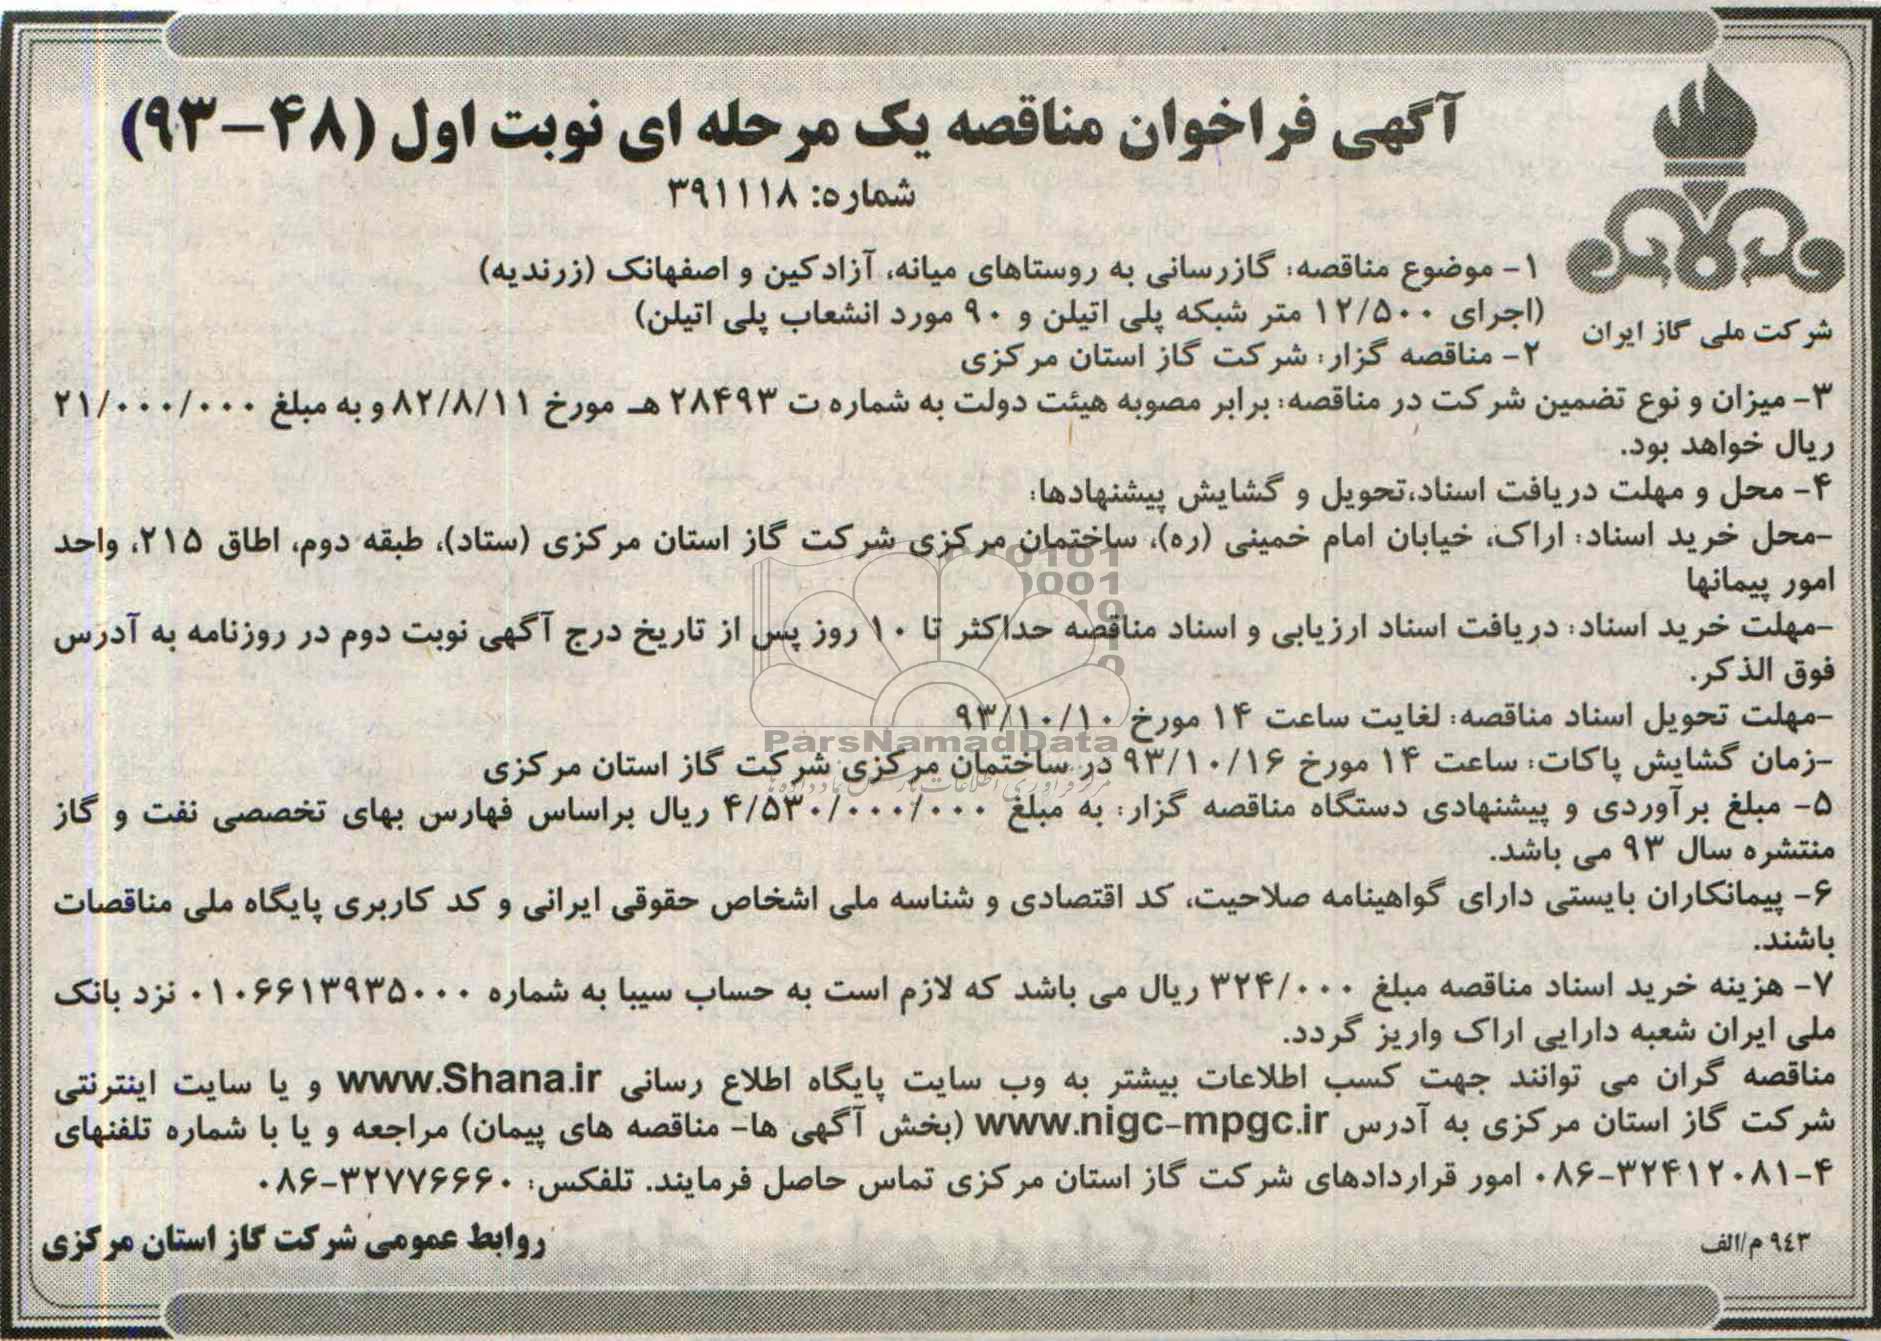 آگهی فراخوان مناقصه یک مرحله ای نوبت اول (۴۸-۹۳)
شماره: ۳۹۱۱۱۸
شرکت ملی گاز ایران
۱- موضوع مناقصه: گازرسانی به روستاهای میانه، آزادکین و اصفهانک (زرندیه)
(اجرای ۱۲/۵۰۰ متر شبکه پلی اتیلن و ۹۰ مورد انشعاب پلی اتیلن)
۲- مناقصه گزار: شرکت گاز استان مرکزی
۳- میزان و نوع تضمین شرکت در مناقصه: برابر مصوبه هیئت دولت به شماره ت ۲۸۴۹۳ هـ مورخ ۸۲/۸/۱۱ و به مبلغ ۲۱/۰۰۰/۰۰۰
ریال خواهد بود.
۴- محل و مهلت دریافت اسناد،تحویل و گشایش پیشنهادها:
-محل خرید اسناد: اراک، خیابان امام خمینی (ره)، ساختمان مرکزی شرکت گاز استان مرکزی (ستاد)، طبقه دوم، اطاق ۲۱۵، واحد
امور پیمانها
-مهلت خرید اسناد: دریافت اسناد ارزیابی و اسناد مناقصه حداکثر تا ۱۰ روز پس از تاریخ درج آگهی نوبت دوم در روزنامه به آدرس
فوق الذکر.
-مهلت تحویل اسناد مناقصه: لغایت ساعت ۱۴ مورخ ۹۳/۱۰/۱۰
ParsNamadData
-زمان گشایش پاکات: ساعت ۱۴ مورخ ۹۳/۱۰/۱۶ در ساختمان مرکزی شرکت گاز استان مرکزی
۵- مبلغ برآوردی و پیشنهادی دستگاه مناقصه گزار: به مبلغ ۴/۵۳۰/۰۰۰/۰۰۰ ریال براساس فهارس بهای تخصصی نفت و گاز
منتشره سال ۹۳ می باشد.
۶- پیمانکاران بایستی دارای گواهینامه صلاحیت، کد اقتصادی و شناسه ملی اشخاص حقوقی ایرانی و کد کاربری پایگاه ملی مناقصات
باشند.
۷- هزینه خرید اسناد مناقصه مبلغ ۳۲۴/۰۰۰ ریال می باشد که لازم است به حساب سیبا به شماره ۰۱۰۶۶۱۳۹۳۵۰۰۰ نزد بانک
ملی ایران شعبه دارایی اراک واریز گردد.
مناقصه گران می توانند جهت کسب اطلاعات بیشتر به وب سایت پایگاه اطلاع رسانی www.Shana.ir و یا سایت اینترنتی
شرکت گاز استان مرکزی به آدرس www.nigc-mpgc.ir (بخش آگهی ها- مناقصه های پیمان) مراجعه و یا با شماره تلفنهای
۰۸۶-۳۲۴۱۲۰۸۱-۴ امور قراردادهای شرکت گاز استان مرکزی تماس حاصل فرمایند. تلفکس: ۰۸۶-۳۲۷۷۶۶۶۰
۹۴۳ م/الف
روابط عمومی شرکت گاز استان مرکزی